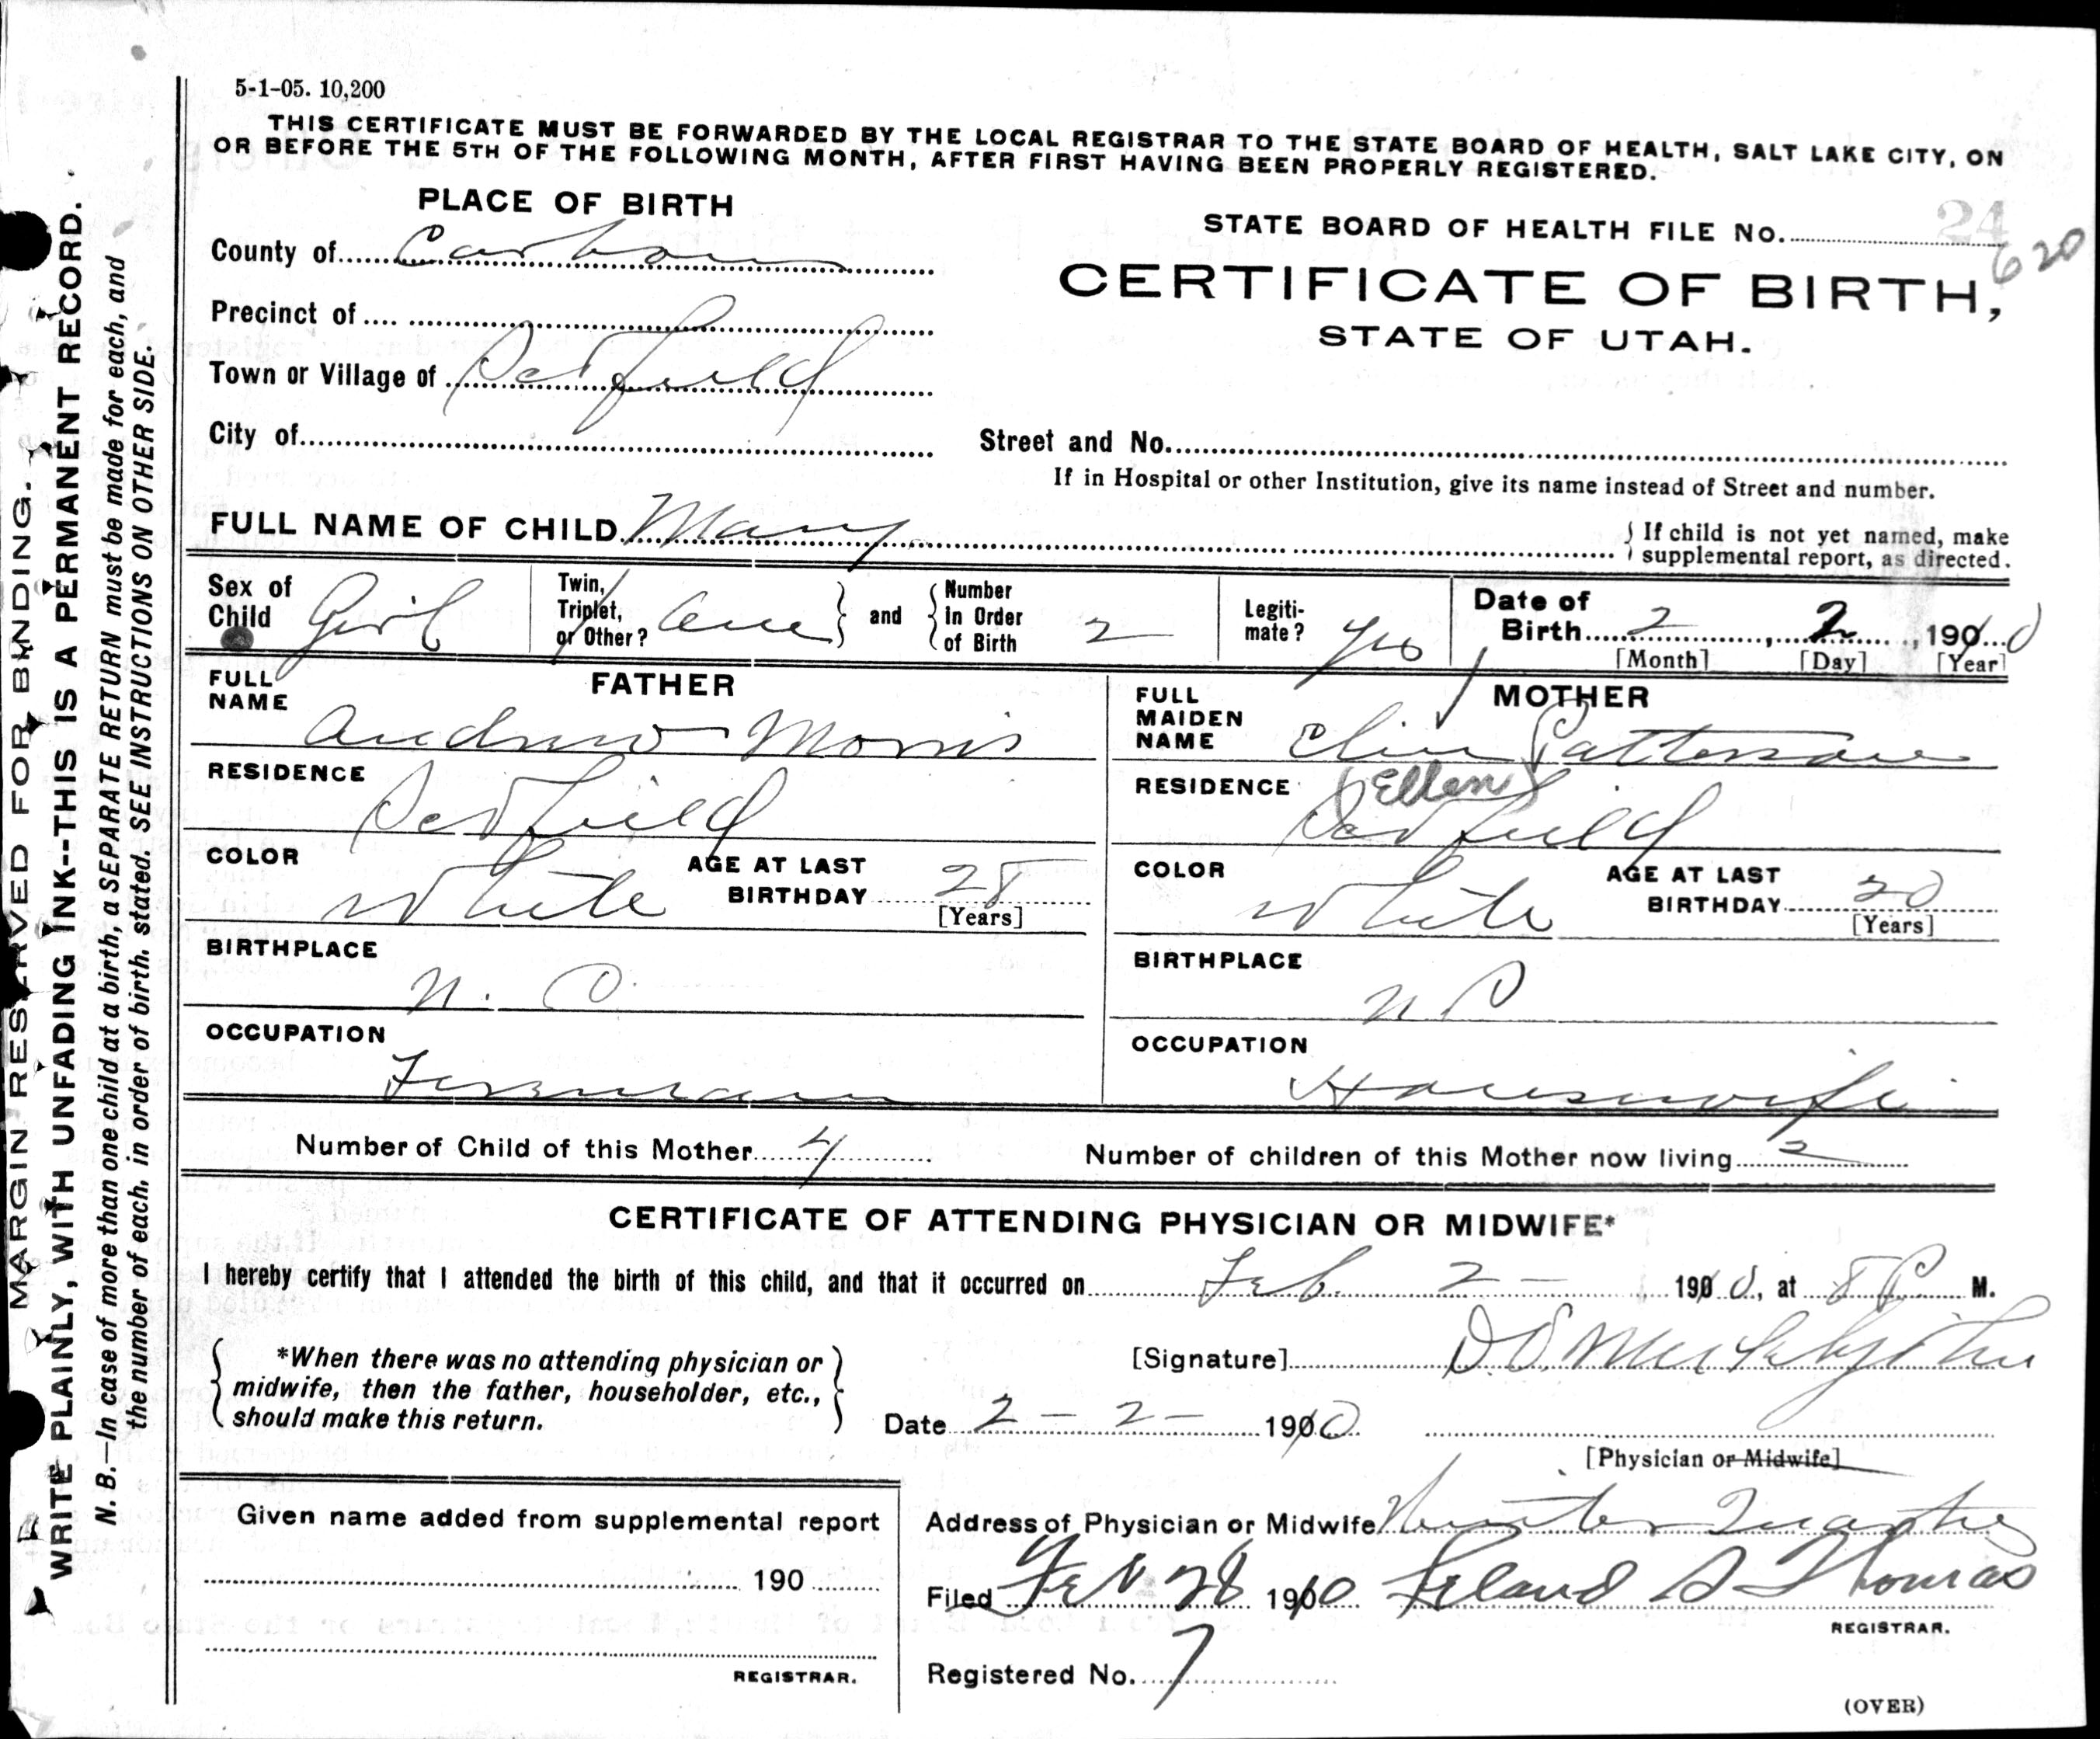 5-1-05. 10,200
THIS CERTIFICATE MUST BE FORWARDED BY THE LOCAL REGISTRAR TO THE STATE BOARD OF HEALTH, SALT LAKE CITY, ON
OR BEFORE THE 5TH OF THE FOLLOWING MONTH, AFTER FIRST HAVING BEEN PROPERLY REGISTERED.
PLACE OF BIRTH
County of Carbon
Precinct of
Town or Village of
City of
STATE BOARD OF HEALTH FILE No. 24
620
CERTIFICATE OF BIRTH,
STATE OF UTAH.
Street and No.
If in Hospital or other Institution, give its name instead of Street and number.
FULL NAME OF CHILD Mary
If child is not yet named, make
supplemental report, as directed.
Sex of
Child Girl
Twin,
Triplet,
or Other?
and
Number
in Order
of Birth 2
Legiti-
mate? yes
Date of
Birth 2, 2, 1910
[Month] [Day] [Year]
FATHER
FULL
NAME Andrew Morris
RESIDENCE
COLOR White
AGE AT LAST
BIRTHDAY 28
[Years]
BIRTHPLACE N. C.
OCCUPATION
MOTHER
FULL
MAIDEN
NAME Patterson
(Ellen)
RESIDENCE
COLOR White
AGE AT LAST
BIRTHDAY 20
[Years]
BIRTHPLACE N C
OCCUPATION Housewife
Number of Child of this Mother 4
Number of children of this Mother now living 2
CERTIFICATE OF ATTENDING PHYSICIAN OR MIDWIFE*
I hereby certify that I attended the birth of this child, and that it occurred on Feb. 2 - 1910, at 8 P M.
*When there was no attending physician or
midwife, then the father, householder, etc.,
should make this return.
[Signature]
Date 2 - 2 - 1910
[Physician or Midwife]
Given name added from supplemental report
190
REGISTRAR.
Address of Physician or Midwife Winter Quarters
Filed Feb 28 1910 Leland S Thomas
REGISTRAR.
Registered No. 7
(OVER)
MARGIN RESERVED FOR BINDING.
WRITE PLAINLY, WITH UNFADING INK--THIS IS A PERMANENT RECORD.
N. B.—In case of more than one child at a birth, a SEPARATE RETURN must be made for each, and
the number of each, in order of birth, stated. SEE INSTRUCTIONS ON OTHER SIDE.